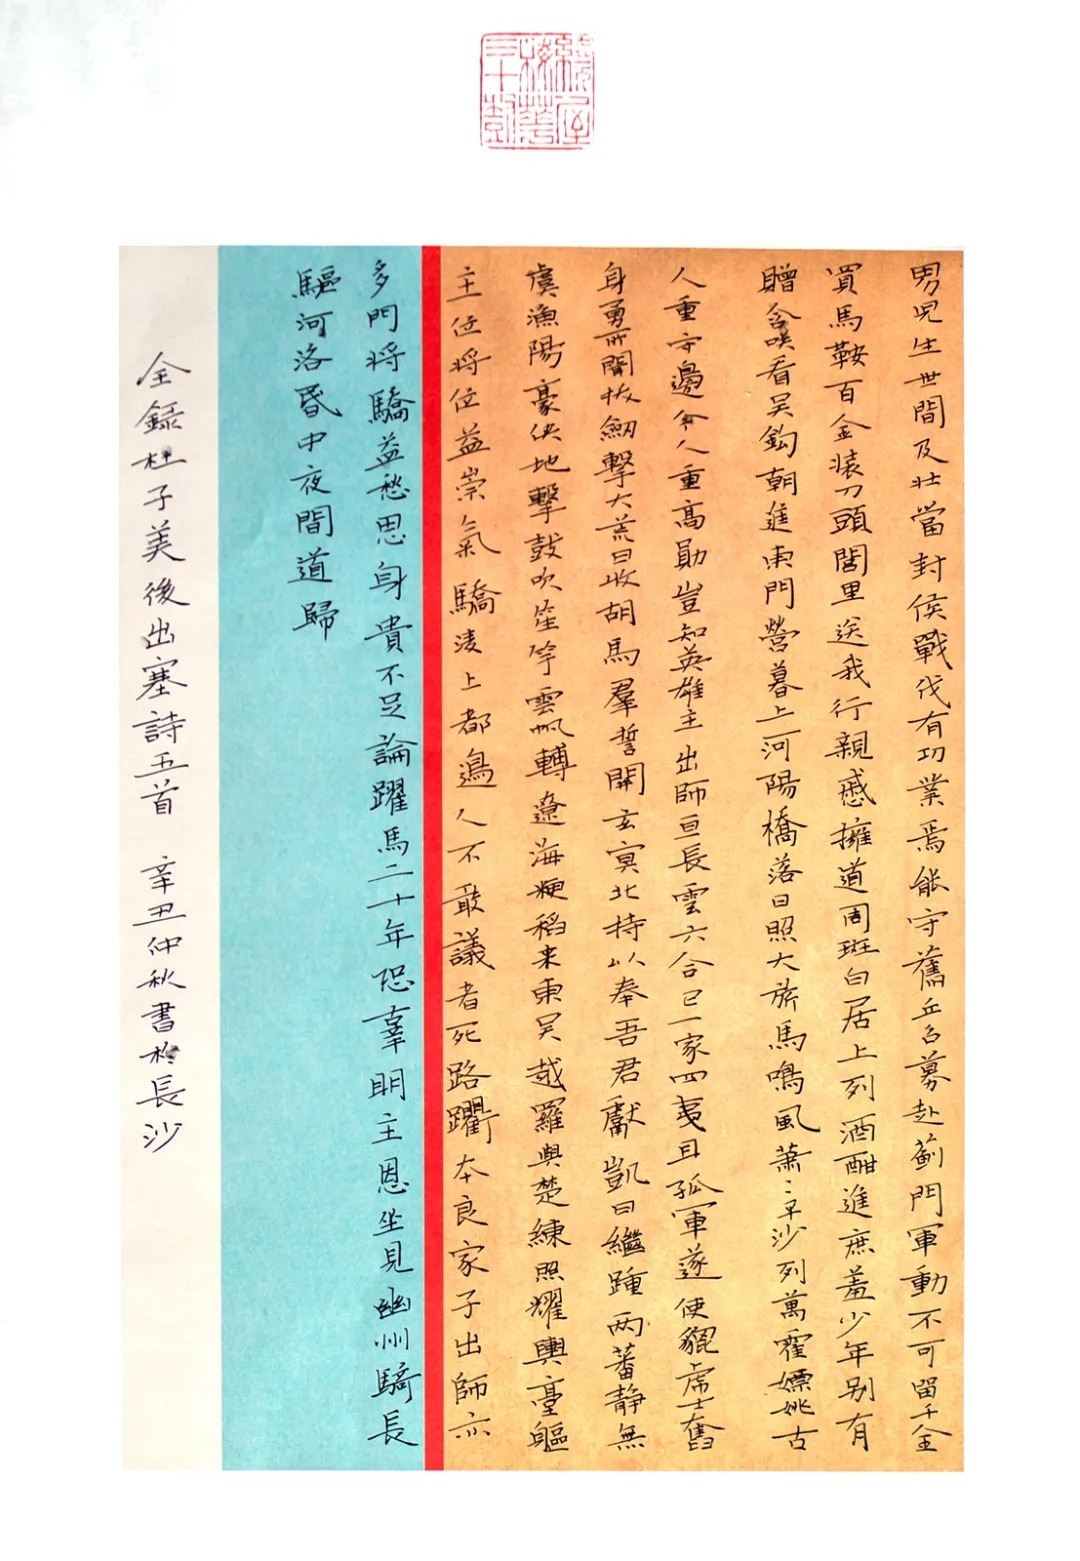 繞屋梅華三十樹
男兒生世間及壯當封侯戰伐有功業焉能守舊丘召募赴薊門軍動不可留千金
買馬鞍百金裝刀頭閭里送我行親戚擁道周斑白居上列酒酣進庶羞少年別有
贈含咲看吳鈎朝進東門營暮上河陽橋落日照大旗馬鳴風蕭〻平沙列萬霍嫖姚古
人重守邊今人重高勳豈知英雄主出師亘長雲六合已一家四夷且孤軍遂使貔虎士奮
身勇所聞拔劒擊大荒日收胡馬羣誓開玄冥北持以奉吾君獻凱日繼踵两蕃靜無
虞漁陽豪俠地擊鼓吹笙竽雲帆轉遼海粳稻来東吳越羅與楚練照耀輿臺軀
主位将位益崇氣驕凌上都邊人不敢議者死路衢本良家子出師亦
多門将驕益愁思身貴不足論躍馬二十年恐辜明主恩坐見幽州騎長
驅河洛昏中夜間道歸
全錄杜子美後出塞詩五首 辛丑仲秋書於長沙